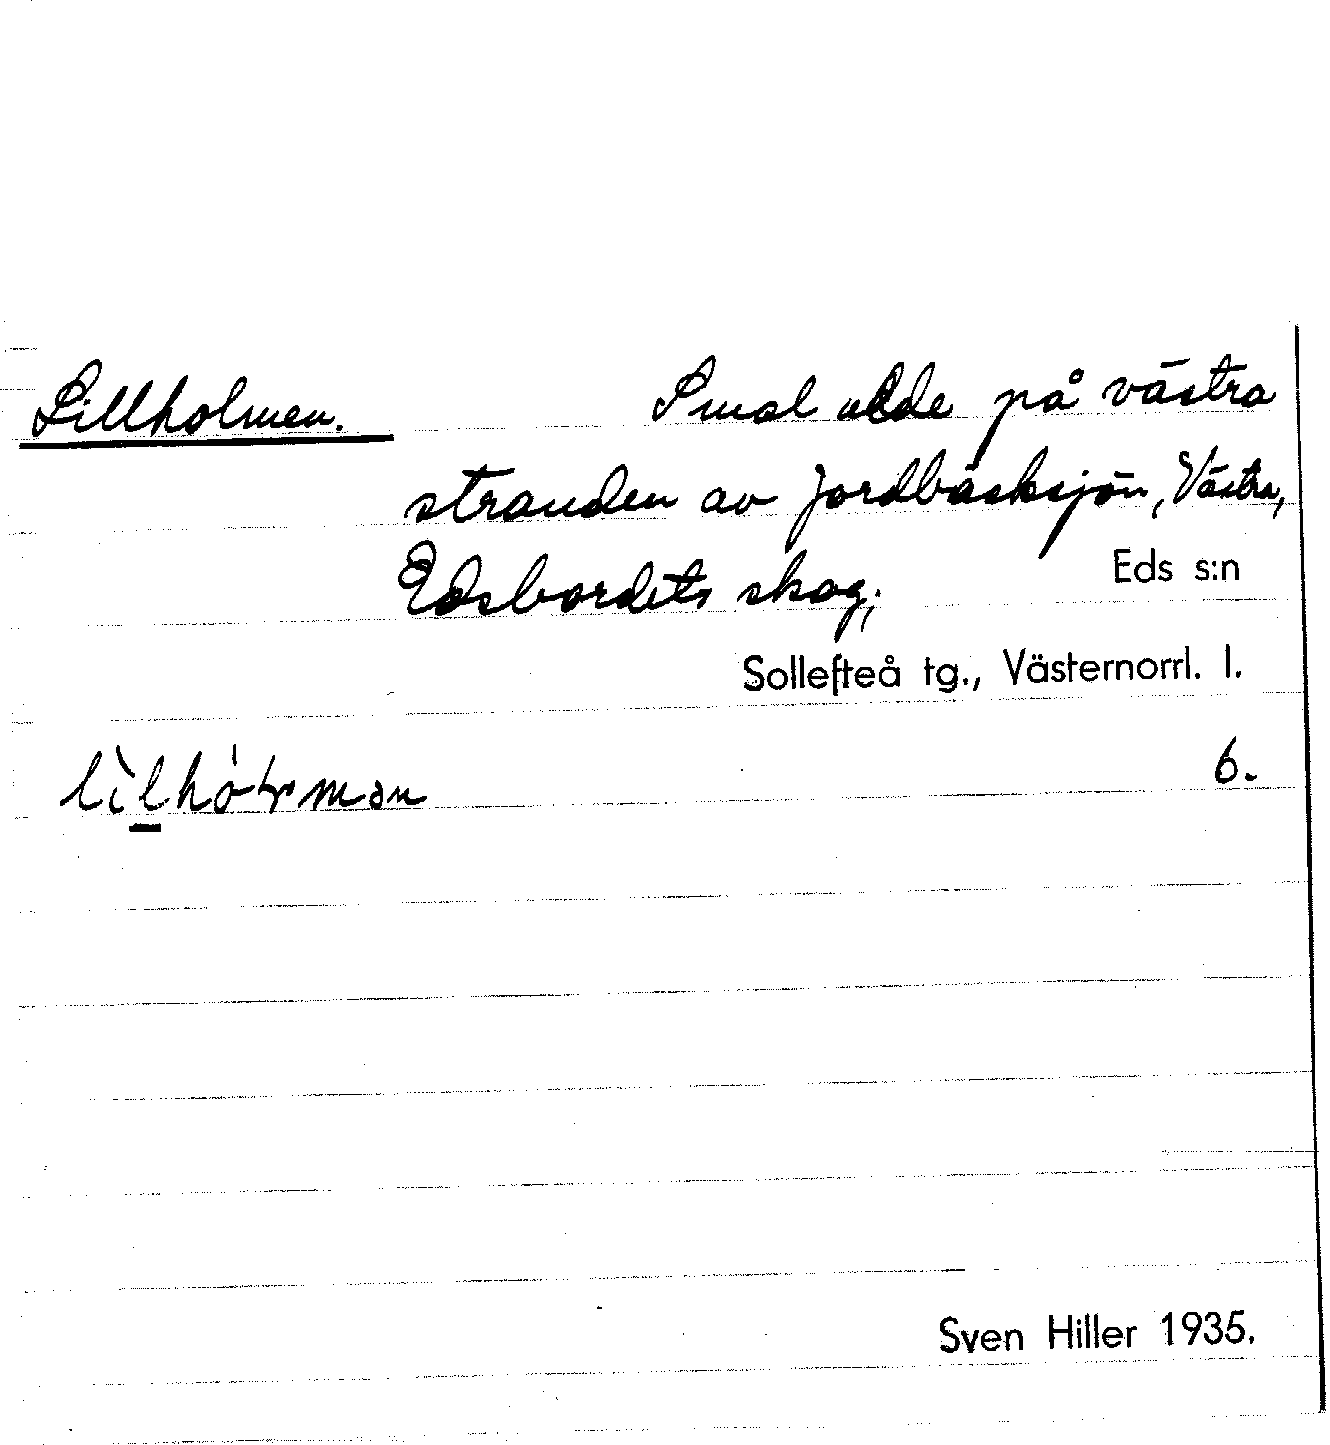 Lillholmen. Smal udde på västra
stranden av Jordbäcksjön, Västra,
Edsbordets skog; Eds s:n
Sollefteå tg., Västernorrl. l.
6.
Sven Hiller 1935.